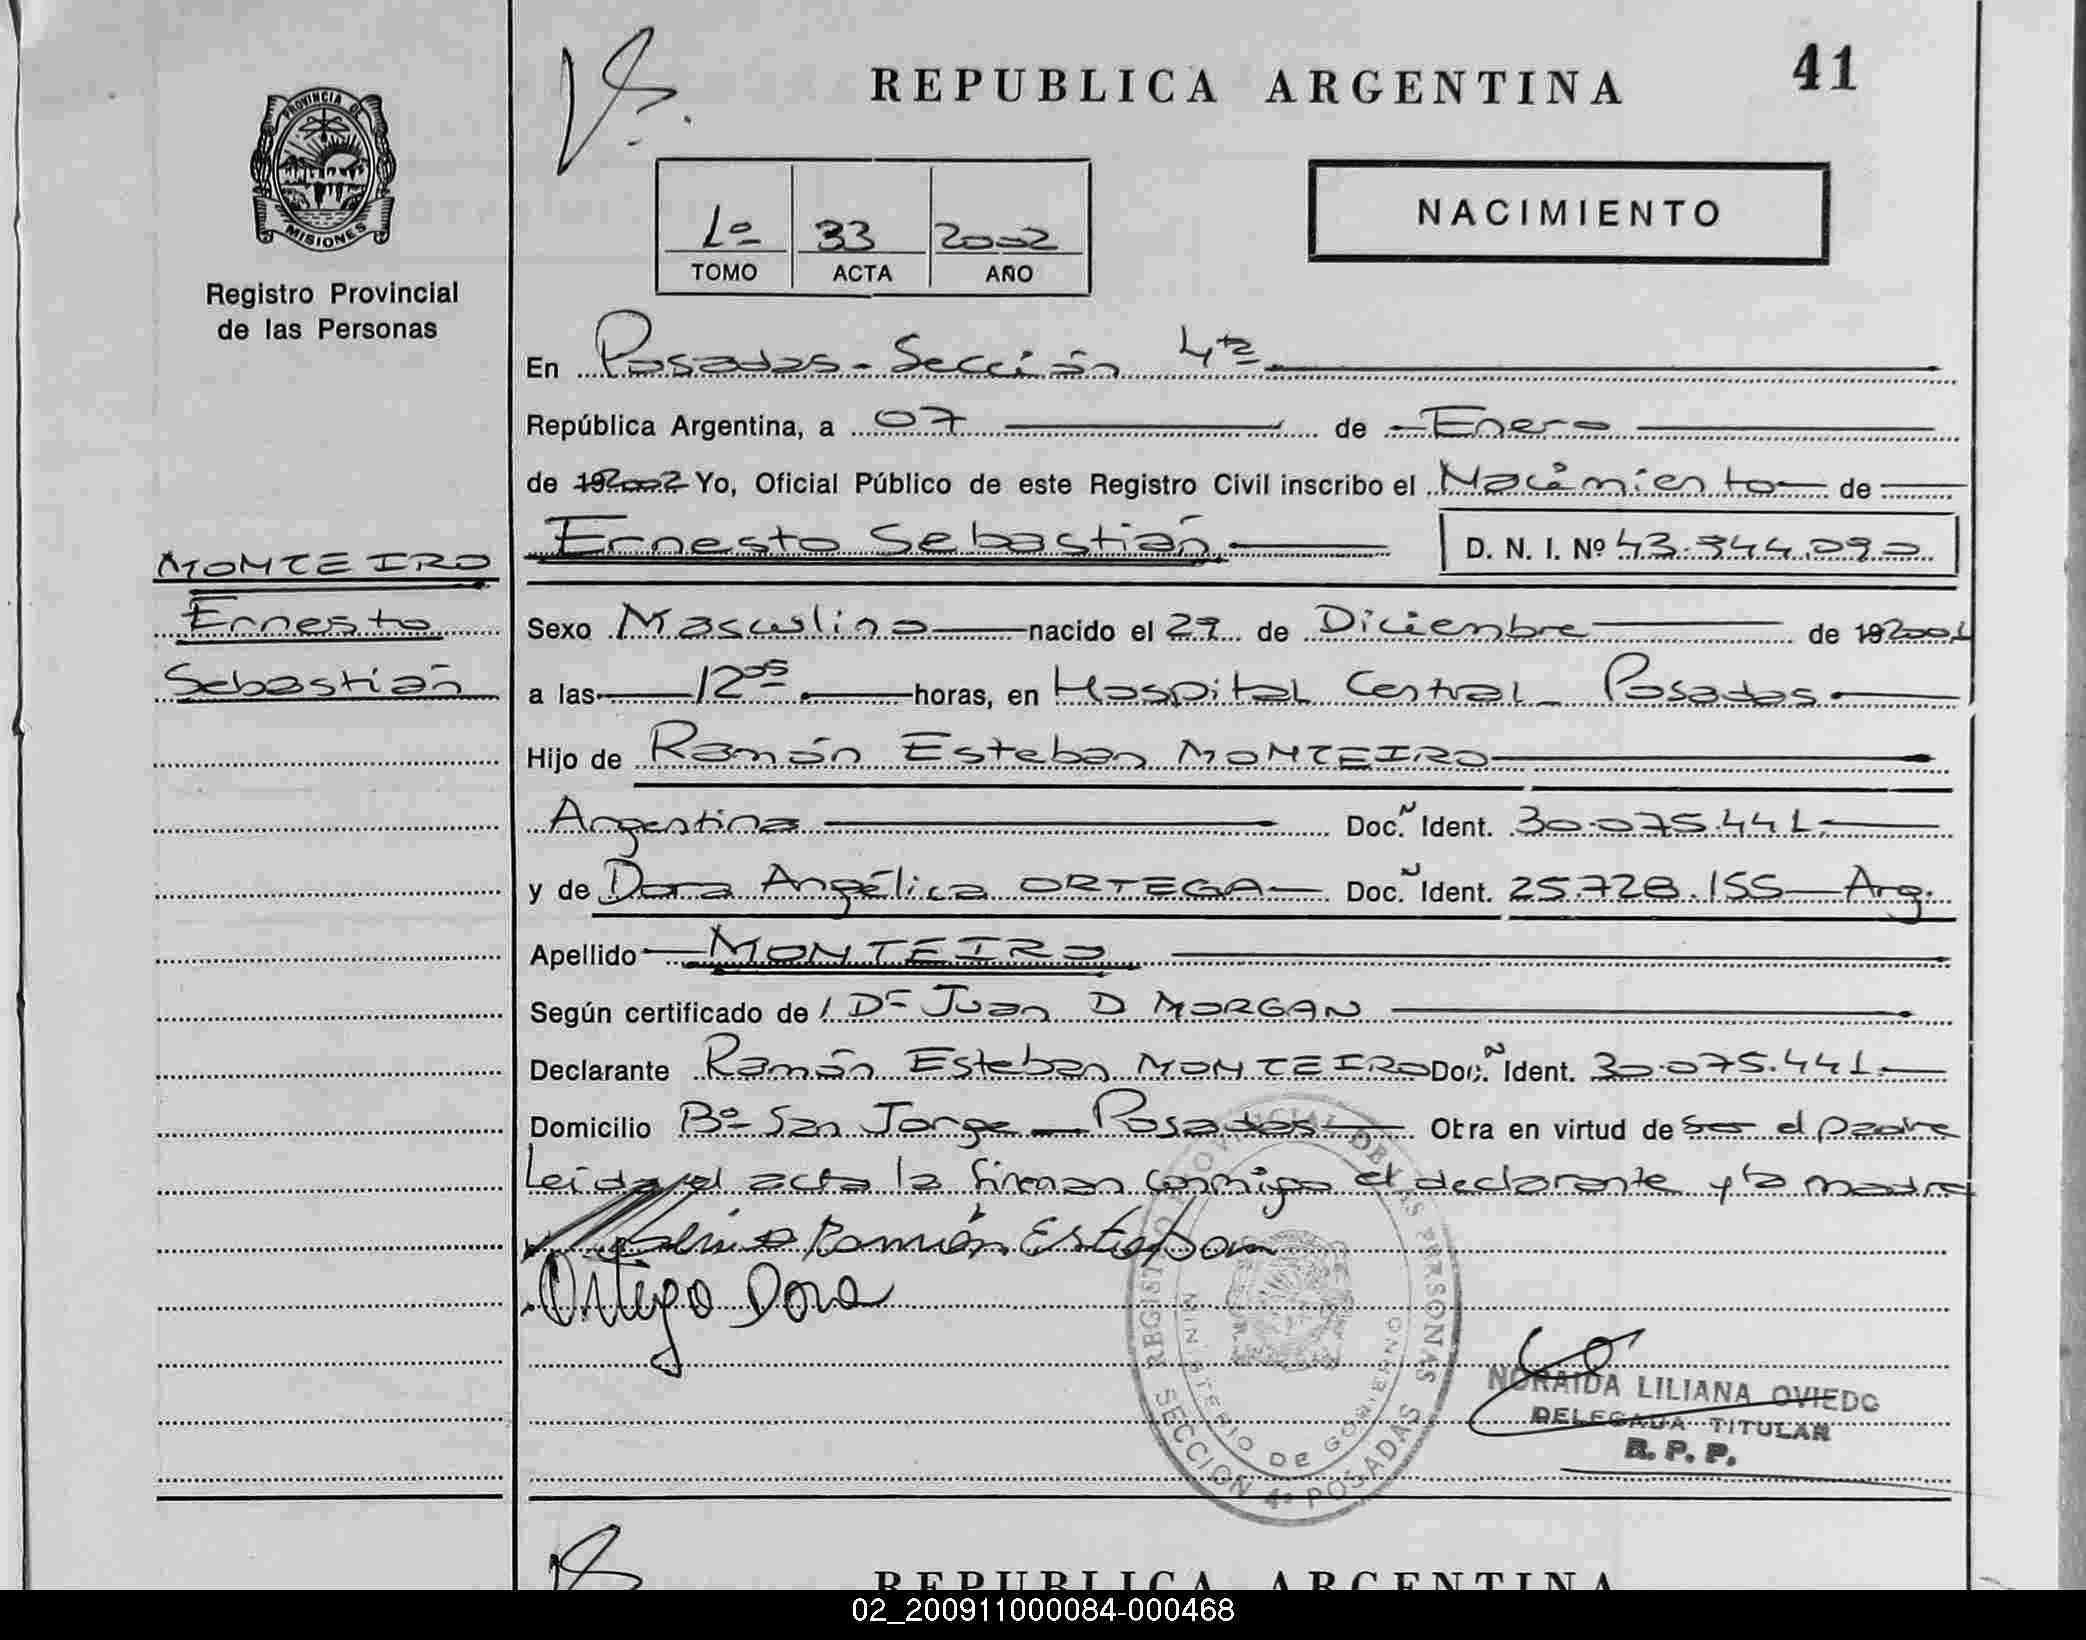 REPUBLICA ARGENTINA
41
PROVINCIA DE
MISIONES
Registro Provincial
de las Personas
1º 33 2002
TOMO ACTA AÑO
NACIMIENTO
En Posadas - Sección 4ta
República Argentina, a 07 de Enero
de 192002 Yo, Oficial Público de este Registro Civil inscribo el Nacimiento de
Ernesto Sebastián D. N. I. Nº 43.944.090
MONTEIRO
Ernesto
Sebastián
Sexo Masculino nacido el 29 de Diciembre de 192001
a las 12 05 horas, en Hospital Central Posadas
Hijo de Ramón Esteban MONTEIRO
Argentina Doc. Ident. 30.075.441
y de Dora Angélica ORTEGA Doc. Ident. 25.728.155 Arg.
Apellido MONTEIRO
Según certificado de Dr Juan D MORGAN
Declarante Ramón Esteban MONTEIRO Doc. Ident. 30.075.441.
Domicilio Bº San Jorge Posadas Obra en virtud de ser el padre
Leída el acta la firman conmigo el declarante y la madre
Ramón Esteban
Ortega Dora
REGISTRO PROVINCIAL DE LAS PERSONAS
MINISTERIO DE GOBIERNO
SECCION 4ª POSADAS
NORAIDA LILIANA OVIEDO
DELEGADA TITULAR
R. P. P.
REPUBLICA ARGENTINA
02_200911000084-000468